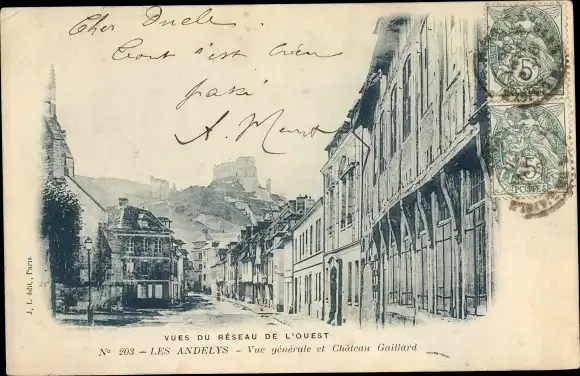 Cher Oncle
Tout s'est bien
passé
A.
5
POSTES
5
POSTES
J. L. édit., Paris
VUES DU RÉSEAU DE L'OUEST
No 203 — LES ANDELYS - Vue générale et Château Gaillard